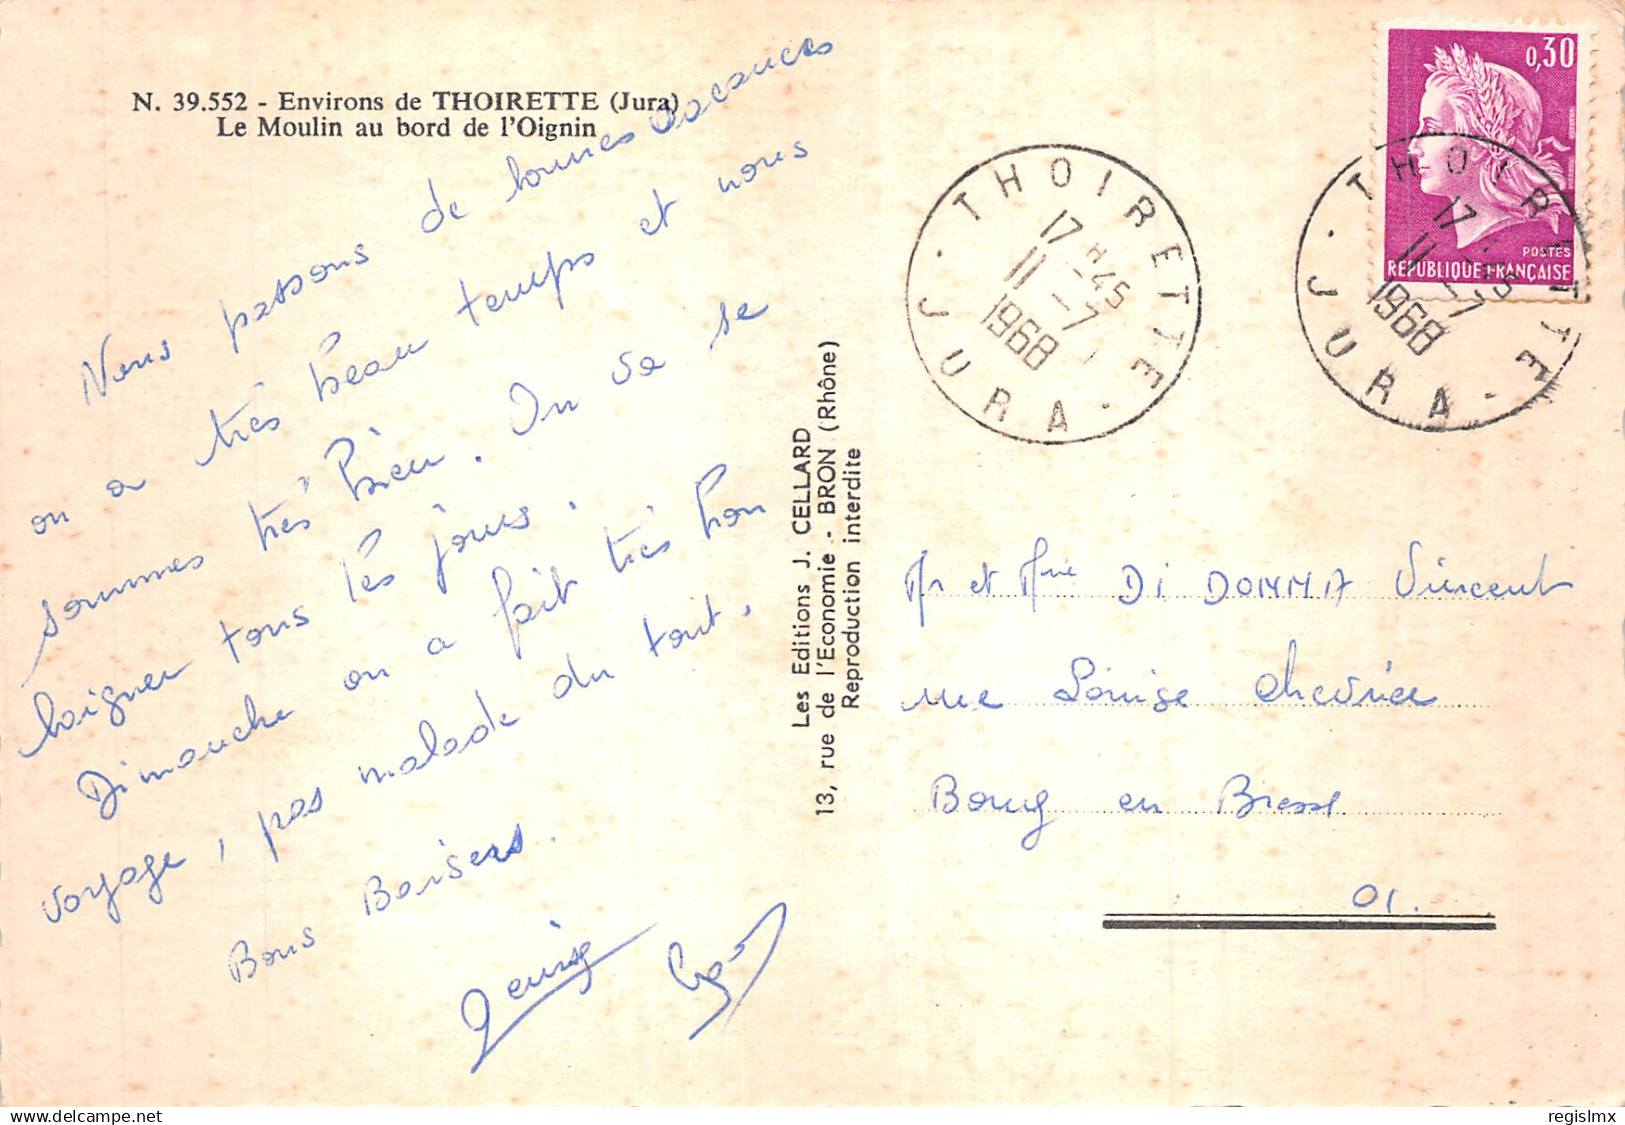 N. 39.552 - Environs de THOIRETTE (Jura)
Le Moulin au bord de l'Oignin
Nous passons de bonnes vacances
on a très beau temps et nous
sommes très bien. On va se
baigner tous les jours.
Dimanche on a fait très bon
voyage, pas malade du tout.
Bons Baisers.
Les Editions J. CELLARD
13, rue de l'Economie - BRON (Rhône)
Reproduction interdite
THOIRETTE
17H45
11-7
1968
JURA
0,30
POSTES
REPUBLIQUE FRANÇAISE
THOIRETTE
17H45
11-7
1968
JURA
Mr et Mme Di DONNA Vincent
rue Louise Chevrier
Bourg en Bresse
01.
regislmx